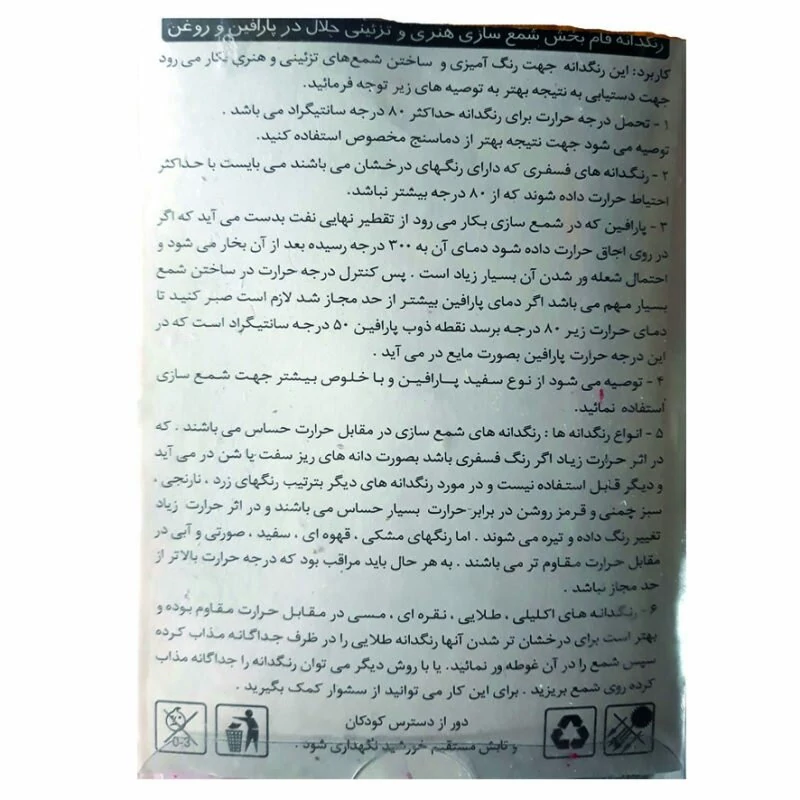 رنگدانه فام بخش شمع سازی هنری و تزئینی جلال در پارافین و روغن
کاربرد: این رنگدانه جهت رنگ آمیزی و ساختن شمع‌های تزئینی و هنری بکار می رود
جهت دستیابی به نتیجه بهتر به توصیه های زیر توجه فرمائید.
۱ - تحمل درجه حرارت برای رنگدانه حداکثر ۸۰ درجه سانتیگراد می باشد .
توصیه می شود جهت نتیجه بهتر از دماسنج مخصوص استفاده کنید.
۲ - رنگدانه های فسفری که دارای رنگهای درخشان می باشند می بایست با حداکثر
احتیاط حرارت داده شوند که از ۸۰ درجه بیشتر نباشد.
۳ - پارافین که در شمع سازی بکار می رود از تقطیر نهایی نفت بدست می آید که اگر
در روی اجاق حرارت داده شود دمای آن به ۳۰۰ درجه رسیده بعد از آن بخار می شود و
احتمال شعله ور شدن آن بسیار زیاد است . پس کنترل درجه حرارت در ساختن شمع
بسیار مهم می باشد اگر دمای پارافین بیشتر از حد مجاز شد لازم است صبر کنید تا
دمای حرارت زیر ۸۰ درجه برسد نقطه ذوب پارافین ۵۰ درجه سانتیگراد است که در
این درجه حرارت پارافین بصورت مایع در می آید .
۴ - توصیه می شود از نوع سفید پارافین و با خلوص بیشتر جهت شمع سازی
استفاده نمائید.
۵ - انواع رنگدانه ها : رنگدانه های شمع سازی در مقابل حرارت حساس می باشند . که
در اثر حرارت زیاد اگر رنگ فسفری باشد بصورت دانه های ریز سفت یا شن در می آید
و دیگر قابل استفاده نیست و در مورد رنگدانه های دیگر بترتیب رنگهای زرد ، نارنجی ،
سبز چمنی و قرمز روشن در برابر حرارت بسیار حساس می باشند و در اثر حرارت زیاد
تغییر رنگ داده و تیره می شوند . اما رنگهای مشکی ، قهوه ای ، سفید ، صورتی و آبی در
مقابل حرارت مقاوم تر می باشند . به هر حال باید مراقب بود که درجه حرارت بالاتر از
حد مجاز نباشد .
۶ - رنگدانه های اکلیلی ، طلایی ، نقره ای ، مسی در مقابل حرارت مقاوم بوده و
بهتر است برای درخشان تر شدن آنها رنگدانه طلایی را در ظرف جداگانه مذاب کرده
سپس شمع را در آن غوطه ور نمائید. یا با روش دیگر می توان رنگدانه را جداگانه مذاب
کرده روی شمع بریزید . برای این کار می توانید از سشوار کمک بگیرید .
دور از دسترس کودکان
و تابش مستقیم خورشید نگهداری شود .
0-3